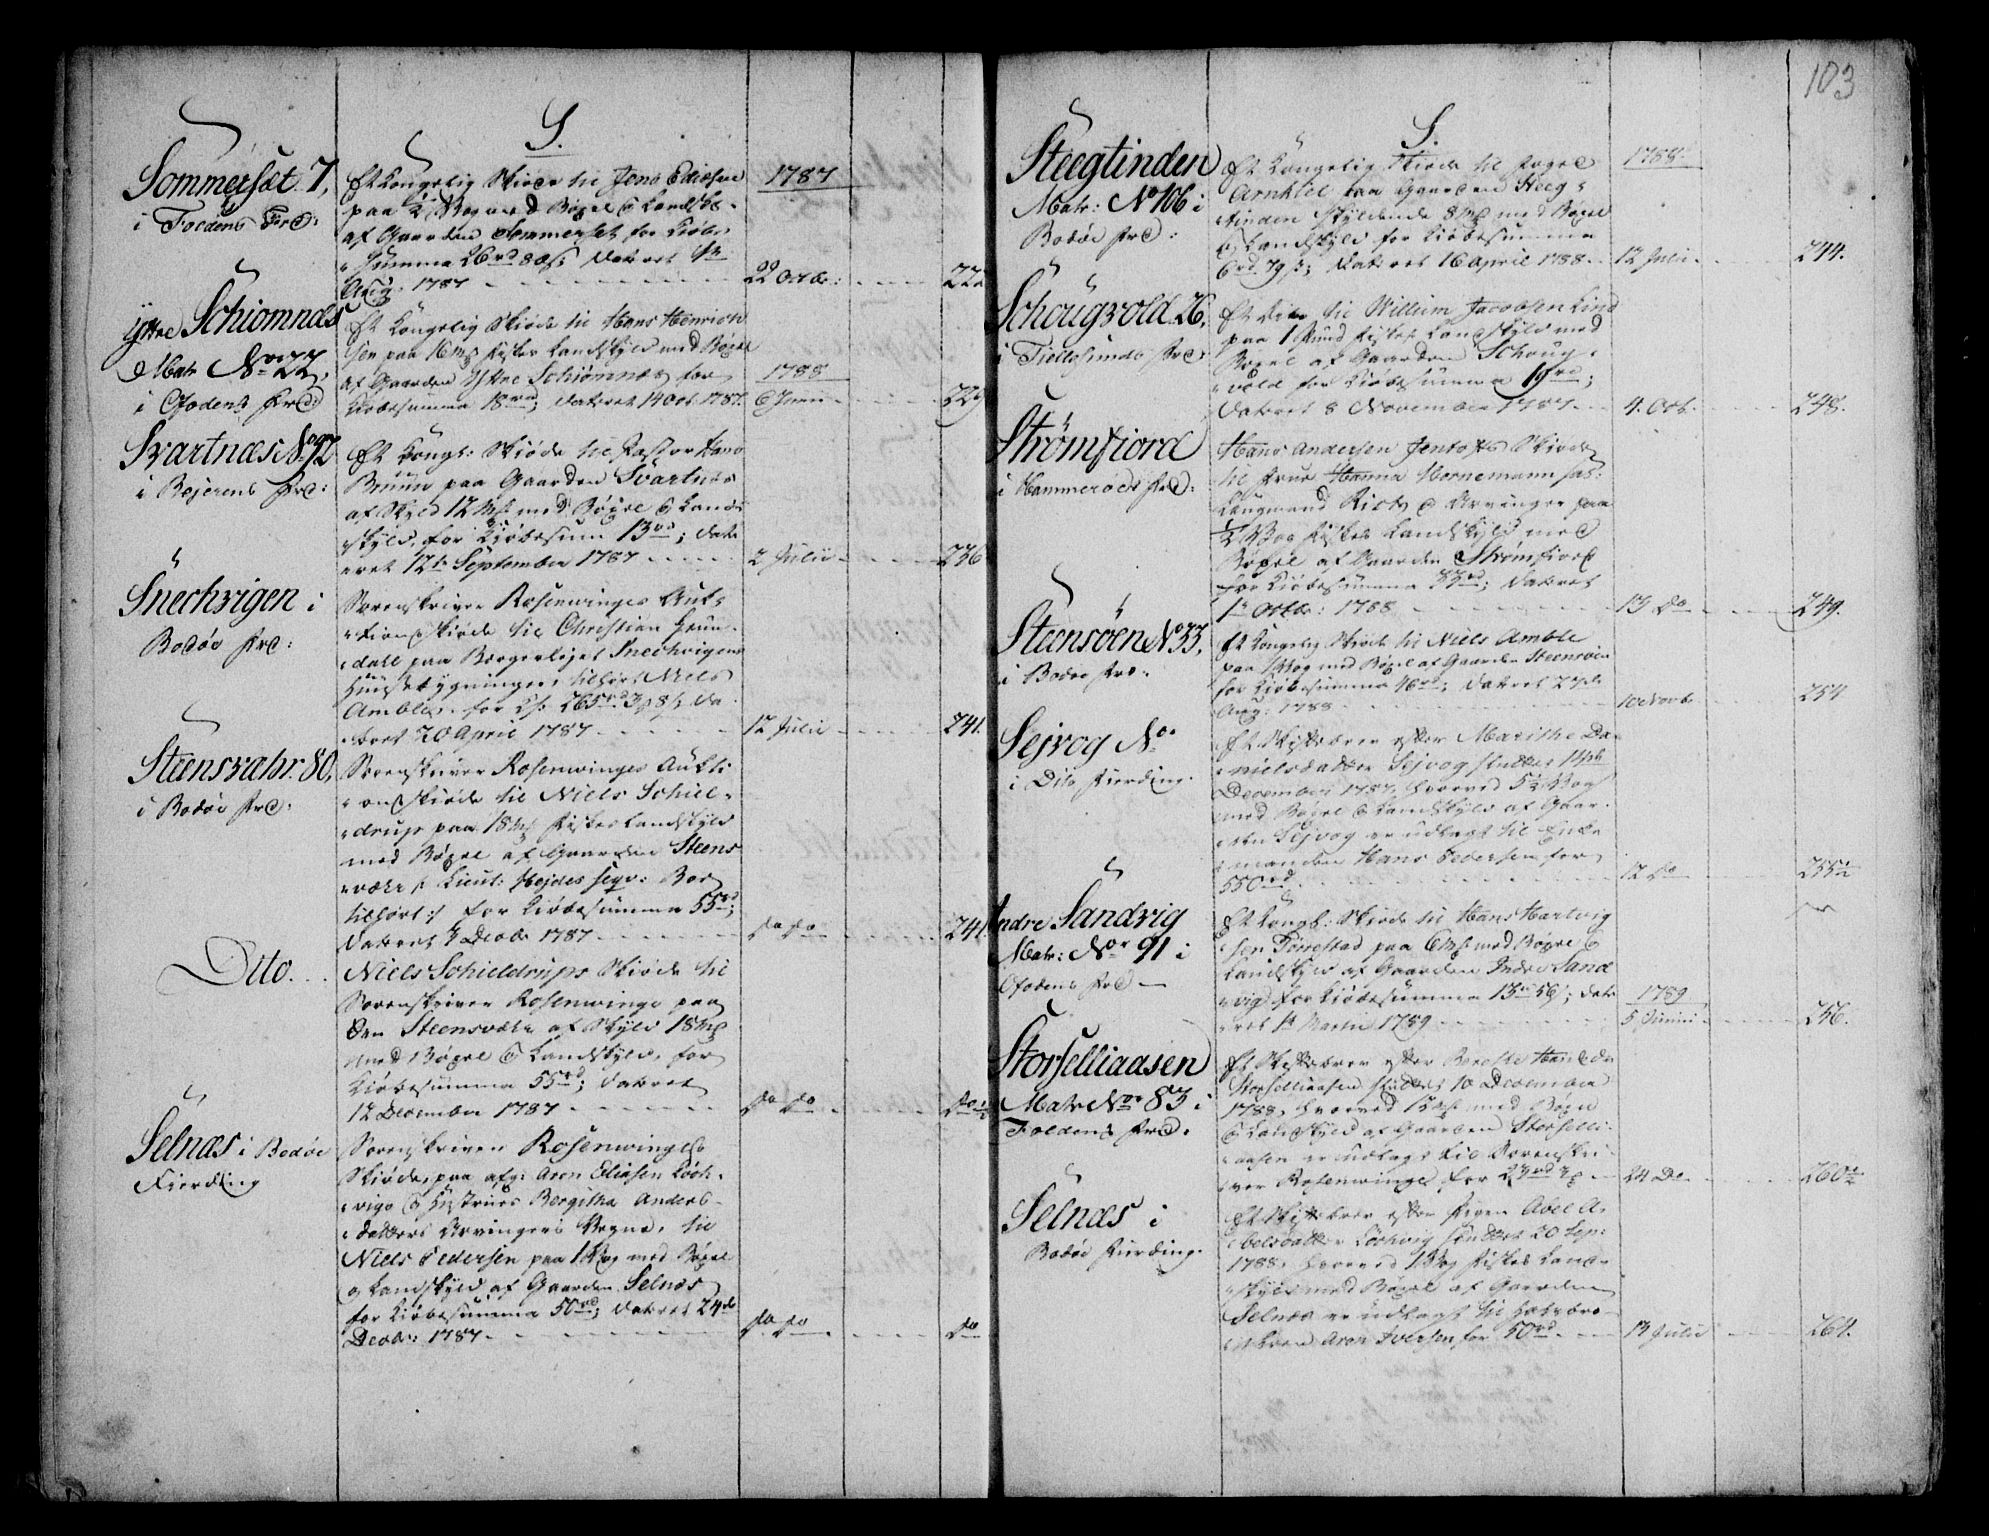 S.
Sommerset 7,
i Foldens Fierd:
Et Kongelig Skiøde til Jens Eliæsen
paa ½ Vog med Bøxel & Landsk.
af Gaarden Sommerset for Kiøbe
summa 26 rd
Aug. 1787
1787
22 Octbr:
Yttre Schiomnæs
Matr No 22,
i Ofodens Fierd:
Et Kongelig Skiøde til Hans Henrich
sen paa 16 Mk Fiskes Landskyld med Bøxel
af Gaarden Yttre Schiømnæs for
Kiøbesumma 18 rd; Dateret 14 Oct. 1787.
1788
6 Junii
229
Svartnæs No 12
i Bejerens Fierd:
Et Kongl: Skiøde til Pastor Hans
Bruun paa Gaarden Svartnæs
af Skyld 12 Mk med Bøxel & Land
skyld, for Kiøbesum 13 rd; Date
eret 12te September 1787
2 Julii
236
Snechvigen i
Bodøe Fierd:
Sorenskriver Rosenwinges Auk-
tions skiøde til Christian
paa Borgerlejet Snechvigens
Huusebygninger, tilhørt Niels
Amble, for 265 rd
teret 20 April 1787
12 Julii
241.
Steensvahr. 80,
i Bodøe Fierd:
Sorenskriver Rosenwinges Aukti
onsskiøde til Niels Schiel-
drup paa 18 Mk Fiskes Landskyld
med Bøxel af Gaarden Steens
Lieut: Hejdes
tilhørt:/ for Kiøbesumma 55 rd;
Dateret Decbr 1787
do do
241
Dito
Niels Schieldrups Skiøde til
Sorenskriver Rosenwinge paa
Steensvæhr af Skyld 18 Mk
med Bøxel & Landskyld, for
Kiøbesumma 55 rd; Dateret
12 December 1787
do do
do
Selnæs i Bodøe
Fierding
Sorenskriver Rosenwinges
Skiøde, paa afg: Aron Eliasen Loch-
vigs & Hustrues Bergitha Anders-
datters Arvingers Vegne, til
Niels Pedersen paa 1 Vog med Bøxel
og Landskyld af Gaarden Selnæs
for Kiøbesumma 50 rd; Dateret 24de
Decbr: 1787
do do
do
103
S.
Steegtinden
Matr: No 106 i
Bodøe Fierd:
Et Kongelig Skiøde til
Arnkiel paa Gaarden Steeg-
tinden Skyldende 8 Mk med Bøxel
& Landskyld for Kiøbesumma
Dateret 16 April 1788
1788
12 Julii
244.
Schougvold 26,
i Tiellesunds Fierd:
Et Dito til Willum Jacobsen Lind
paa 1 Pund Fiskes Landskyld med
Bøxel af Gaarden Schoug-
vold for Kiøbesumma
Dateret 8 November 1787
4. Oct.
248.
Strømfiord
i Hammerøe Fierd:
Hans Andersen Jentofts Skiøde
til Frue Hanna Hornemann
Laugmand & Arvinger paa
½ Vog Fiskes Landskyld med
Bøxel af Gaarden Strømfiord
for Kiøbesumma 55 rd; Dateret
1te Octbr: 1788
13 do
249.
Steensøen No 33,
i Bodøe Fierd:
Et Kongelig Skiøde til Niels Amble
paa 1 Vog med Bøxel af Gaarden Steensøen
for Kiøbesumma 46 rd; Dateret 22de
Aug: 1788
10 Novb
254
Sejvog No
i Dito Fierding.
Et Skiftebrev efter Marithe Da-
nielsdatter Sejvog sluttet 14de
December 1787, hvorved Vog
med Bøxel & Landskyld af Gaar-
den Sejvog er udlagt til Enke
manden Hans Pedersen for
550 rd
12 do
255½
Indre Sandvig
Matr: No 91 i
Ofodens Fierd
Et Kongl: Skiøde til Hans Hartvig
sen Forrestad paa 6 Mk med Bøxel &
Landskyld af Gaarden Indre Sand
vig for Kiøbesumma Date
ret Martii 1789
1789
5 Junii
256.
Storselliaasen
Matr No 83 i
Foldens Fierd.
Et Skiftebrev efter Berethe Hansda
Storselliaasen sluttet 10 December
1788, hvorved med Bøxel
& Landskyld af Gaarden Storselli-
aasen er udlagt til Sorenskri-
ver Rosenwinge for
24 do
260½
Selnæs i
Bodøe Fierding.
Et Skiftebrev efter Pigen Abel A-
belsdatter Lochvig sluttet 20 Sep:
1788, hvorved 1 Vog Fiskes Land-
skyld med Bøxel af Gaarden
Selnæs er udlagt til
Aron Iversen for 50 rd
13 Julii
264.